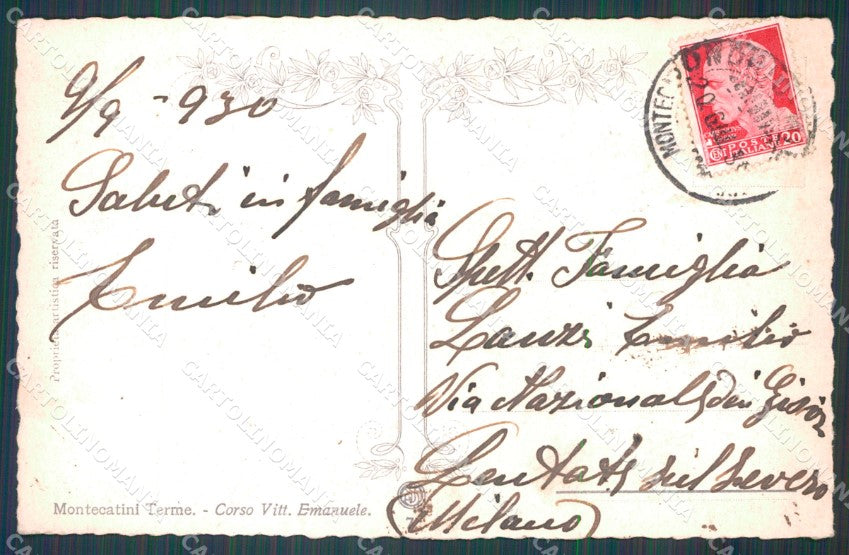 9/9 - 930
Saluti in famiglia
Emilio
Spett. Famiglia
Lanzi Emilio
Via Nazionale dei Giovi
Lentate sul Seveso
(Milano)
Proprietà artistica riservata
Montecatini Terme. - Corso Vitt. Emanuele.
POSTE
ITALIANE
CENT 20
MONTECA
CARTOLINOMANIA